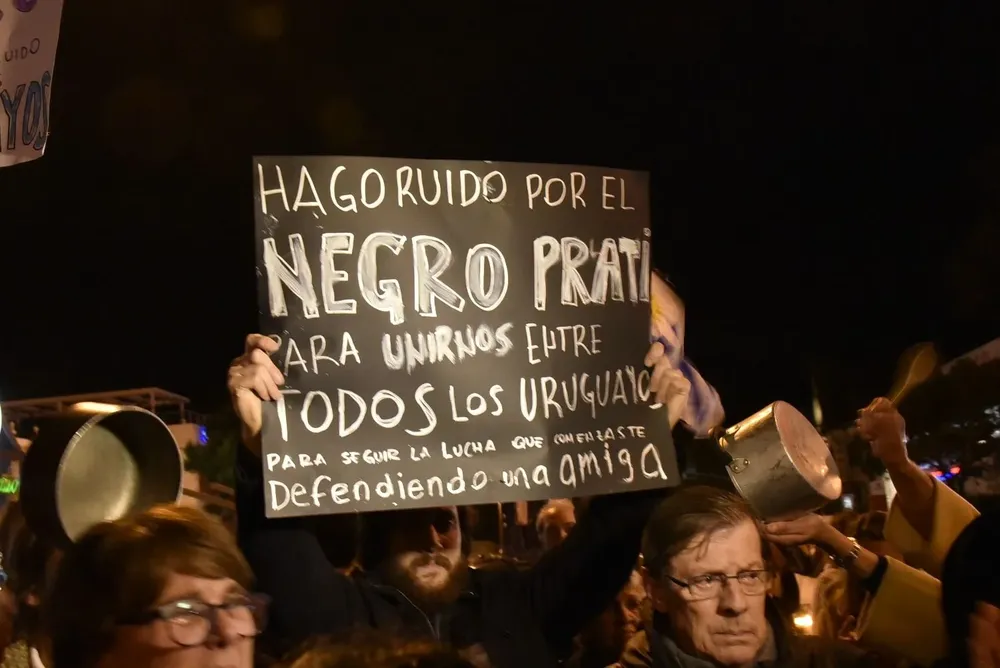 UIDO
YOS
HAGO RUIDO POR EL
NEGRO PRATI
PARA UNIRNOS ENTRE
TODOS LOS URUGUAYOS
PARA SEGUIR LA LUCHA QUE COMENZASTE
Defendiendo una amiga